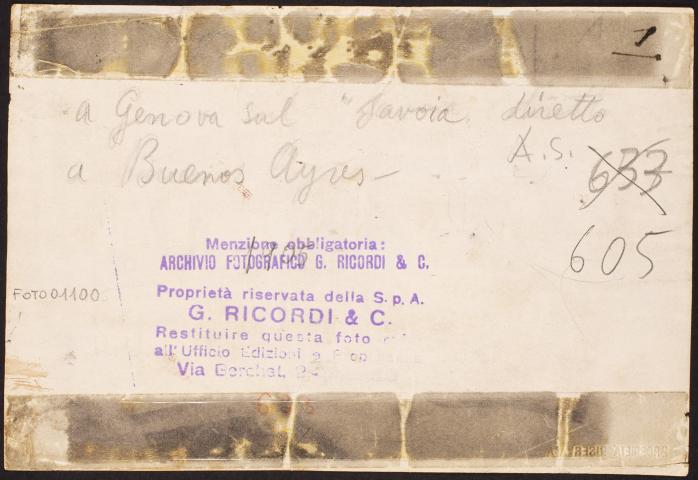 1
a Genova sul "Savoia" diretto
a Buenos Ayres -
A.S.
633
605
Menzione obbligatoria:
ARCHIVIO FOTOGRAFICO G. RICORDI & C.
FOTO01100
Proprietà riservata della S.p.A.
G. RICORDI & C.
Restituire questa foto
all'Ufficio Edizioni e
Via Berchet, 2